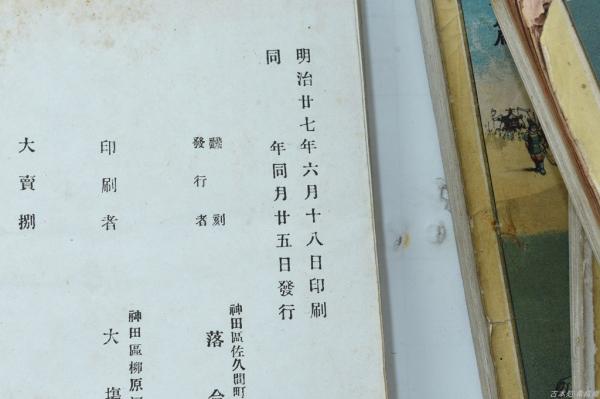 明治廿七年六月十八日印刷
同年同月廿五日發行
飜刻
發行者
神田區佐久間町
落合
印刷者
神田區柳原
大塲
大賣捌